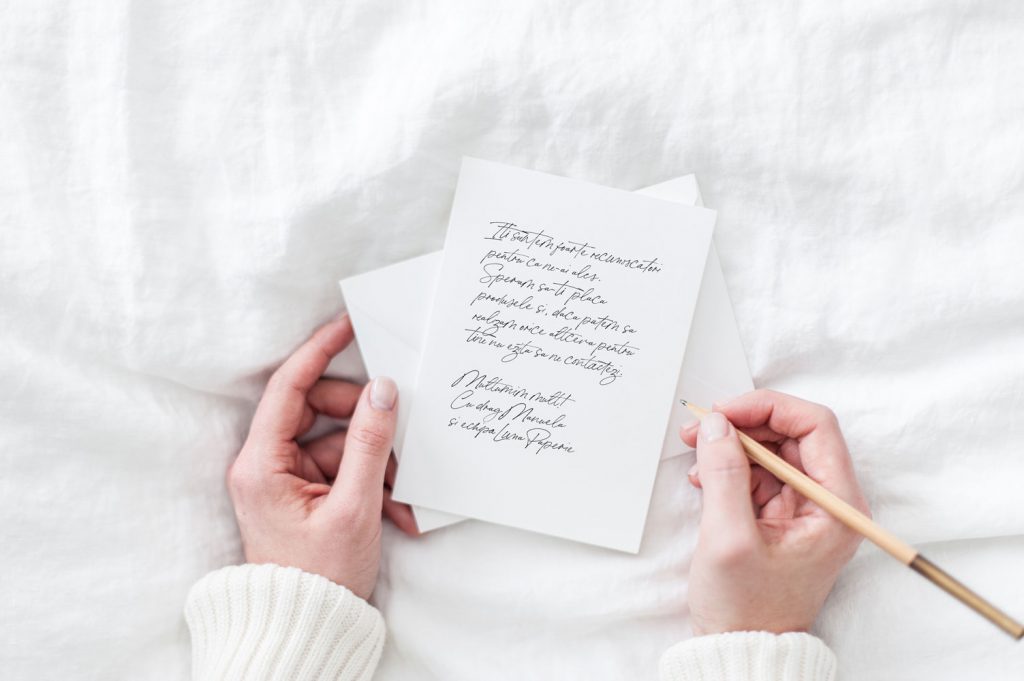 Iti suntem foarte recunoscatori
pentru ca ne-ai ales.
Speram sa-ti placa
produsele si, daca putem sa
realizam orice altceva pentru
tine nu ezita sa ne contactezi.
Multumim mult!
Cu drag Manuela
si echipa Luna Paperie